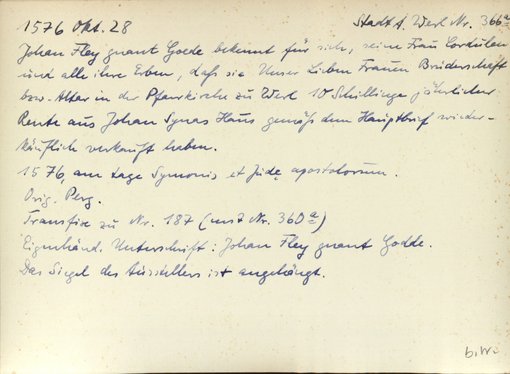 1576 Okt. 28 Stadt A. Werl Nr. 366a
Johan Fley gnant Goede bekennt für sich, seine Frau Cordulen
und alle ihre Erben, daß sie Unser Lieben Frauen Bruderschaft
bzw. Altar in der Pfarrkirche zu Werl 10 Schillinge jährlicher
Rente aus Johan Synas Haus gemäß dem Hauptbrief wieder-
käuflich verkauft haben.
1576, am tage Symonis et Jude apostolorum.
Orig. Perg.
Transfix zu Nr. 187 (und Nr. 360a)
Eigenhänd. Unterschrift: Johan Fley gnant Godde.
Das Siegel des Ausstellers ist angehängt.
b.w.